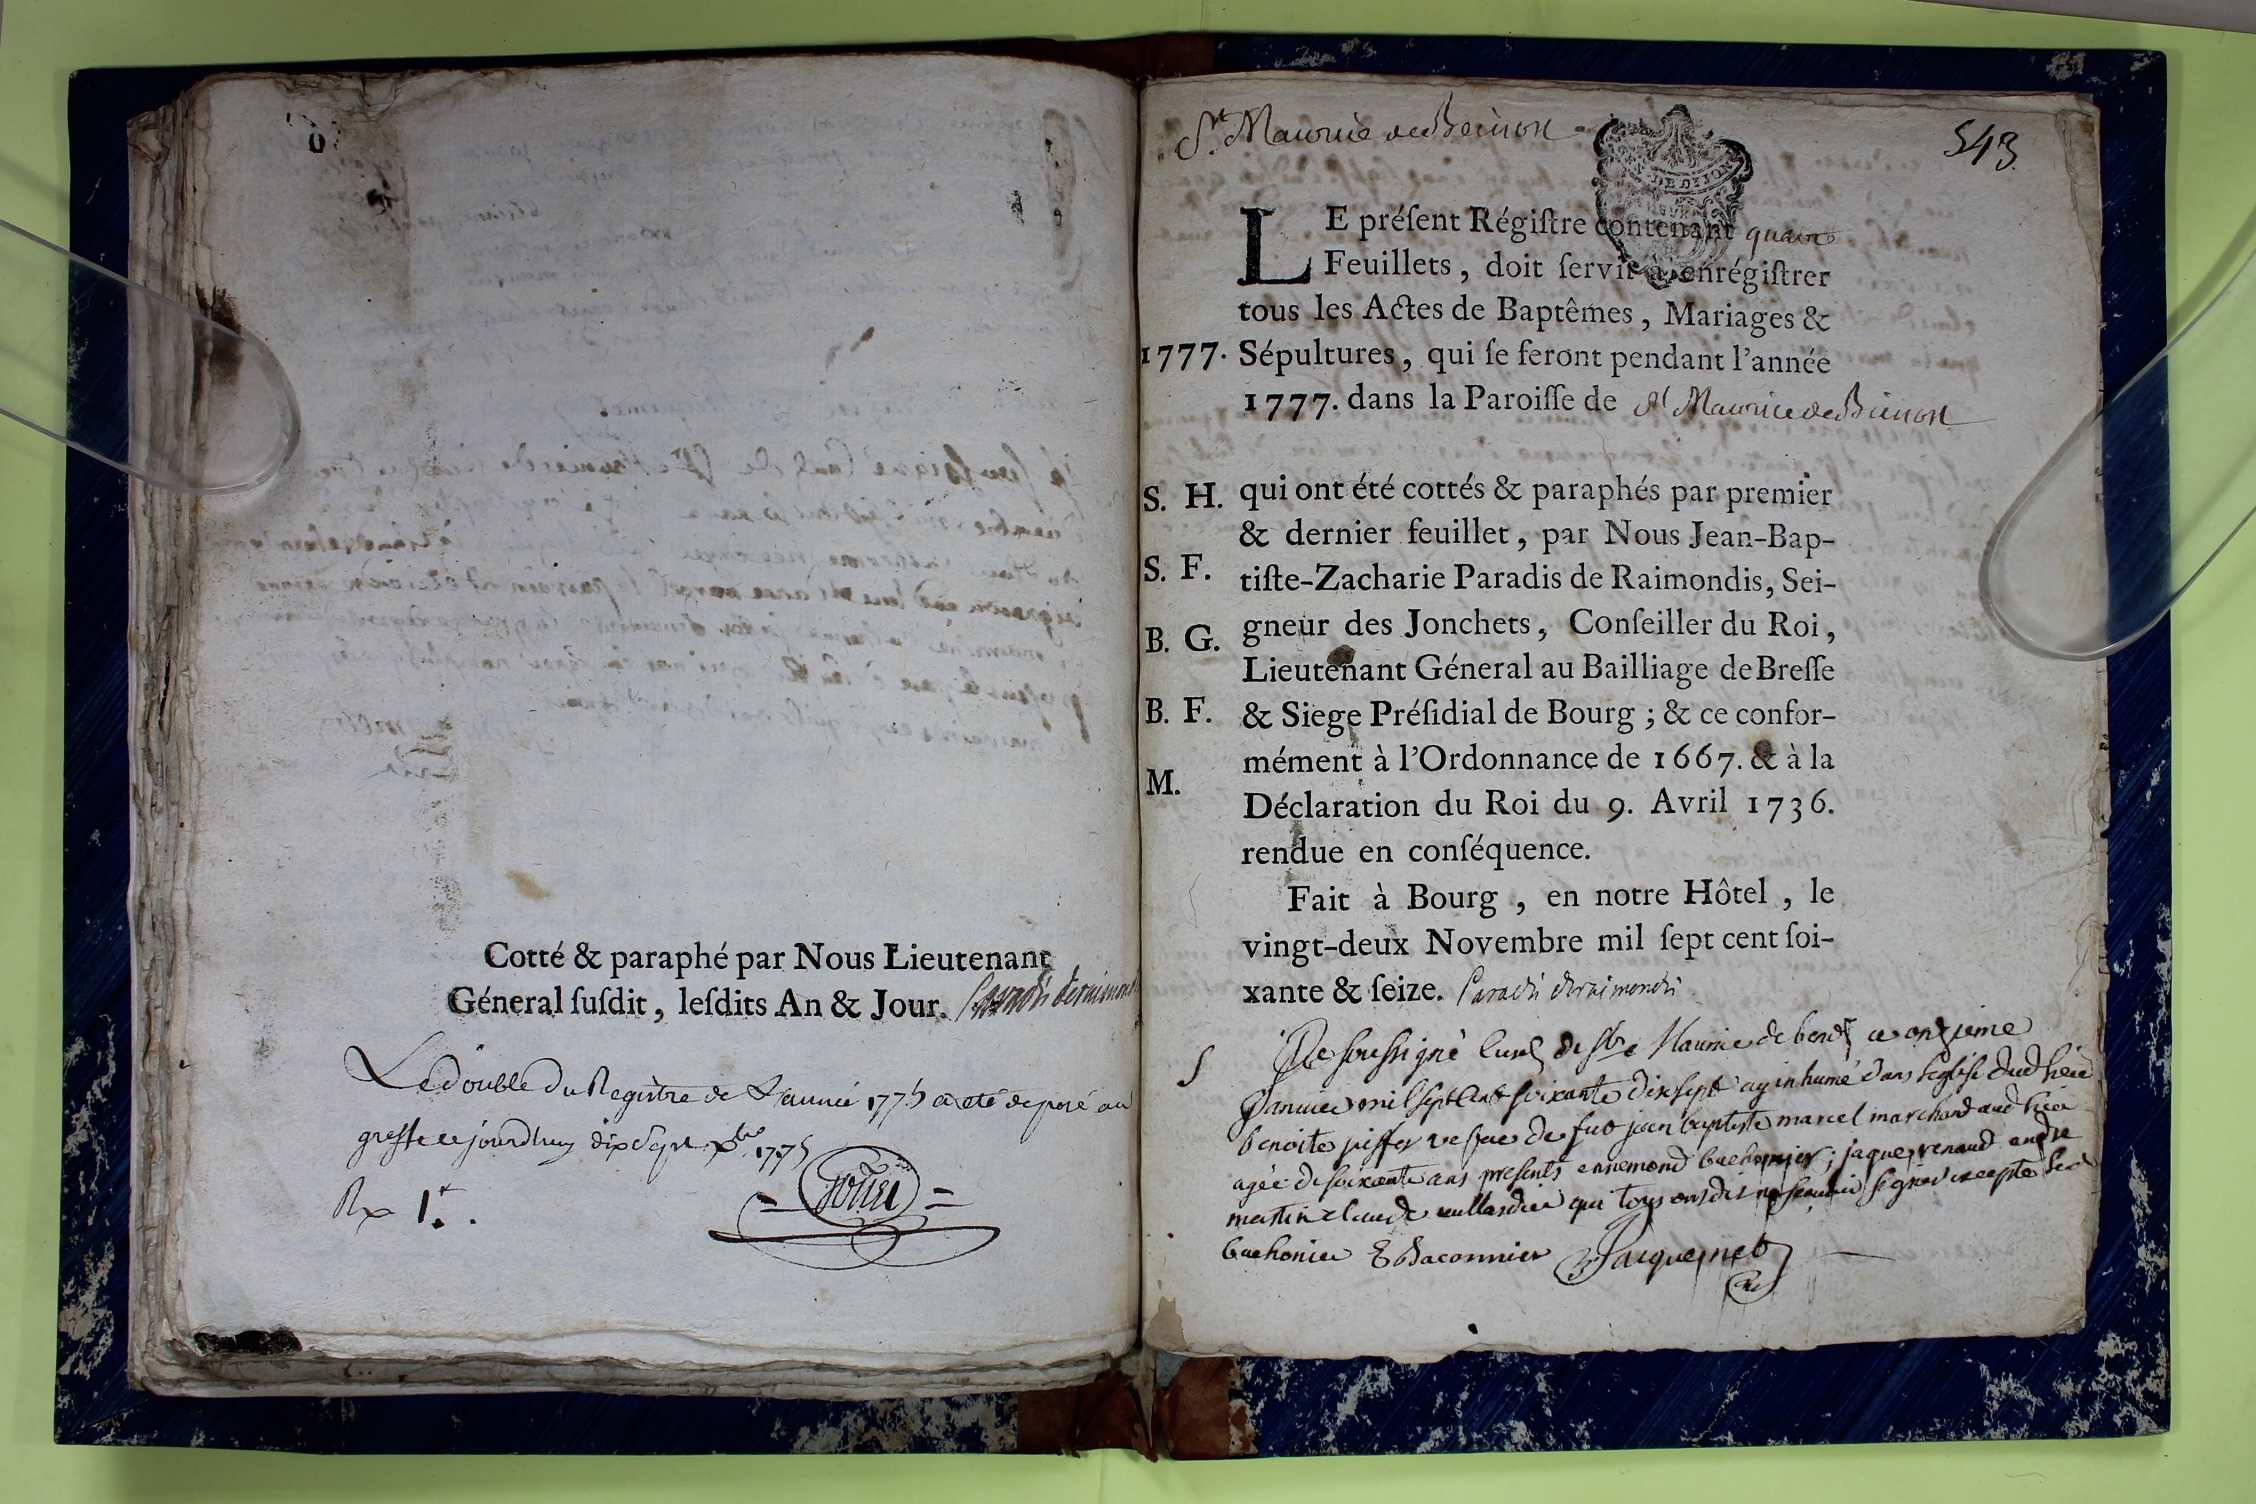 Cotté & paraphé par Nous Lieutenant
Géneral ſuſdit, leſdits An & Jour. Paradis deraimondis
Le double du Registre de L'année 1775 a eté deposé au
greffe ce jourdhuy dix Sept Xbre 1775
Rx 1.
543.
St. Maurice de
DE DIJON
LE préſent Régiſtre contenant quatre
Feuillets, doit ſervir à enrégiſtrer
tous les Actes de Baptêmes, Mariages &
1777. Sépultures, qui ſe feront pendant l'année
1777. dans la Paroiſſe de St Maurice de
S. H. qui ont été cottés & paraphés par premier
& dernier feuillet, par Nous Jean-Bap-
S. F. tiſte-Zacharie Paradis de Raimondis, Sei-
B. G. gneur des Jonchets, Conſeiller du Roi,
Lieutenant Géneral au Bailliage de Breſſe
B. F. & Siege Préſidial de Bourg ; & ce confor-
mément à l'Ordonnance de 1667. & à la
M. Déclaration du Roi du 9. Avril 1736.
rendue en conſéquence.
Fait à Bourg, en notre Hôtel, le
vingt-deux Novembre mil ſept cent ſoi-
xante & ſeize. Paradis deraimondis
S Je soussigné Curé de St Maurice de ce onzieme
Janvier mil sept cent soixante dix sept ay inhumé dans leglise dud lieu
benoite veſue de fut jean baptiste marcel marchand aud lieu
agée de soixante ans presents ennemond bachonier, jaque renaud andre
martin claude qui tous ont dit ne scavoir signer excepté led
bachonier E Baconnier Jacquemet